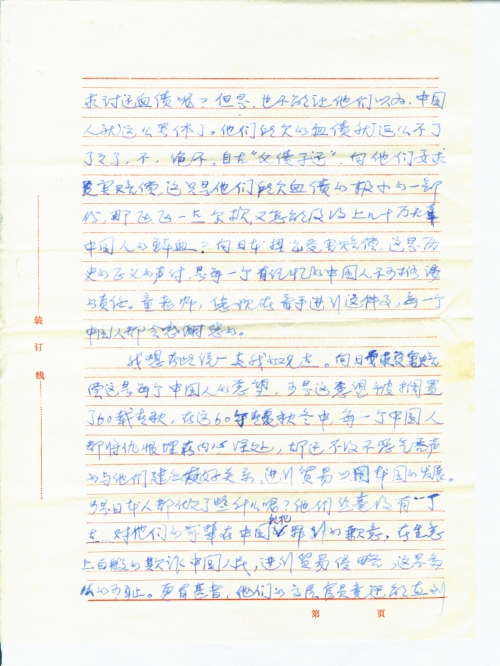 求讨还血债呢？但是，也不能让他们以为，中国
人就这么算作了，他们所欠的血债就这么不了
了之了，不，绝不。自古“父债子还”，向他们要求
受害赔偿这只是他们所欠血债的极小的一部
份，那区区一点欠款，又怎能及得上几十万
中国人的鲜血？向日本提出受害赔偿，这是历
史的正义的声讨，是每一个有记忆的中国人不可推诿
的责任。童老师，您现在着手进行这件事，每一个
中国人都会感谢您的。
我想在此说一点我的观点。向日要求受害赔
偿这是每个中国人的愿望，可是这愿望被搁置
了60载春秋，在这60个春夏秋冬中，每一个中国人
都将仇恨埋在内心深处，却还不得不忍气吞声
的与他们建立友好关系，进行贸易以图本国的发展。
可是日本人都做了些什么呢？他们丝毫没有一丁
点对他们的前辈在中国犯的罪行的歉意，在生意
上百般的欺诈中国人民，进行贸易侵略，这是多
么的可耻。更有甚者，他们的高层官员竟还能在
装订线
第 页